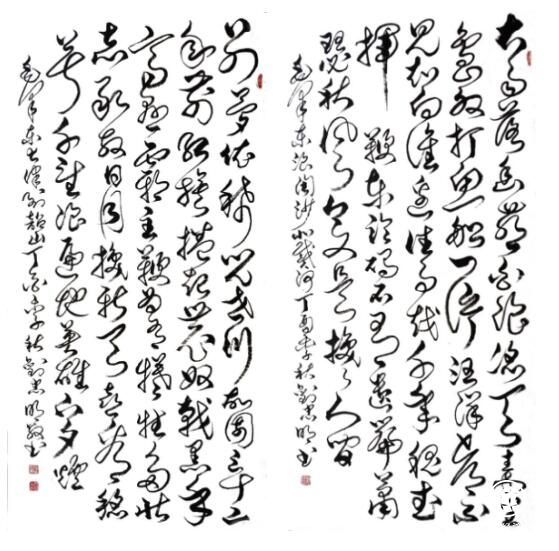 大雨落幽燕白浪滔天秦皇
島外打魚船一片汪洋都不
見知向誰邊往事越千年魏武
揮鞭東臨碣石有遺篇蕭
瑟秋風今又是換了人間
毛澤東浪淘沙北戴河丁酉年秋劉忠明書
別夢依稀咒逝川故園三十二
年前紅旗捲起農奴戟黑手
高懸霸主鞭為有犧牲多壯
志敢教日月換新天喜看稻
菽千重浪遍地英雄下夕煙
毛澤東七律到韶山丁酉年秋劉忠明敬書